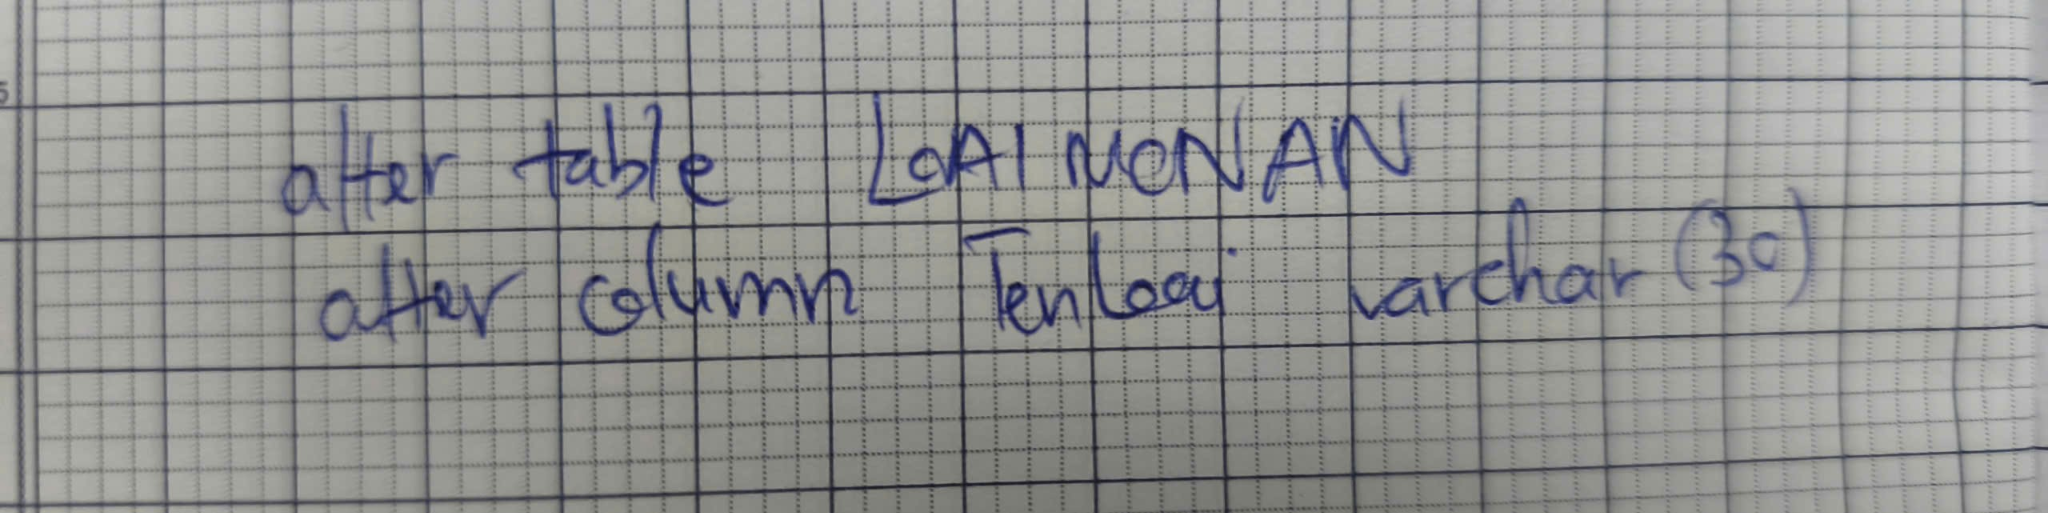 alter table LOAIMONAN
alter column TenLoai varchar(30)